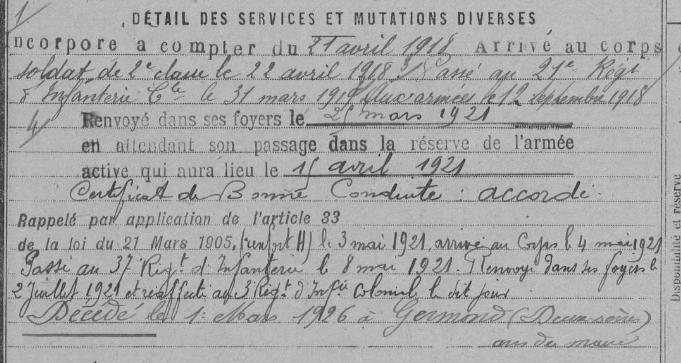 DÉTAIL DES SERVICES ET MUTATIONS DIVERSES
Incorporé à compter du 21 avril 1918 Arrivé au corps
soldat de 2e classe le 22 avril 1918. Passé au 21e Régt
d'Infanterie Cle le 31 mars 1919 Aux armées le 12 septembre 1918
Renvoyé dans ses foyers le 25 mars 1921
en attendant son passage dans la réserve de l'armée
active qui aura lieu le 15 avril 1921
Certificat de Bonne Conduite : accordé.
Rappelé par application de l'article 33
de la loi du 21 Mars 1905, (renfort H) le 3 mai 1921, arrivé au Corps le 4 mai 1921
Passé au 37 Régt d'Infanterie le 8 mai 1921. Renvoyé dans ses foyers le
2 Juillet 1921 et réaffecté au 3 Régt d'Infie Coloniale le dit jour
Décédé le 1er Mars 1926 à Germond (Deux-Sèvres)
avis du maire
Disponibilité et réserve